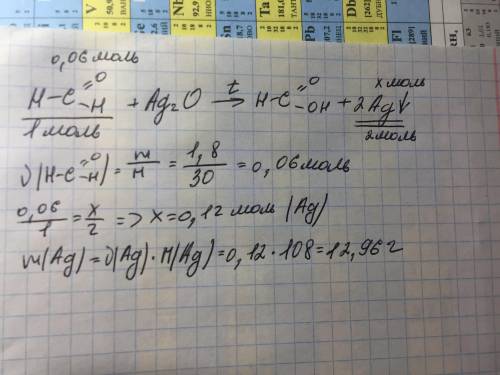 0,06 моль
O x моль
H-C=H + Ag₂O →t H-C=O-OH + 2Ag↓
1 моль 2 моль
ν(H-C=O-H) = m/M = 1,8/30 = 0,06 моль
0,06/1 = x/2 => x = 0,12 моль (Ag)
m(Ag) = ν(Ag)·M(Ag) = 0,12·108 = 12,96 г